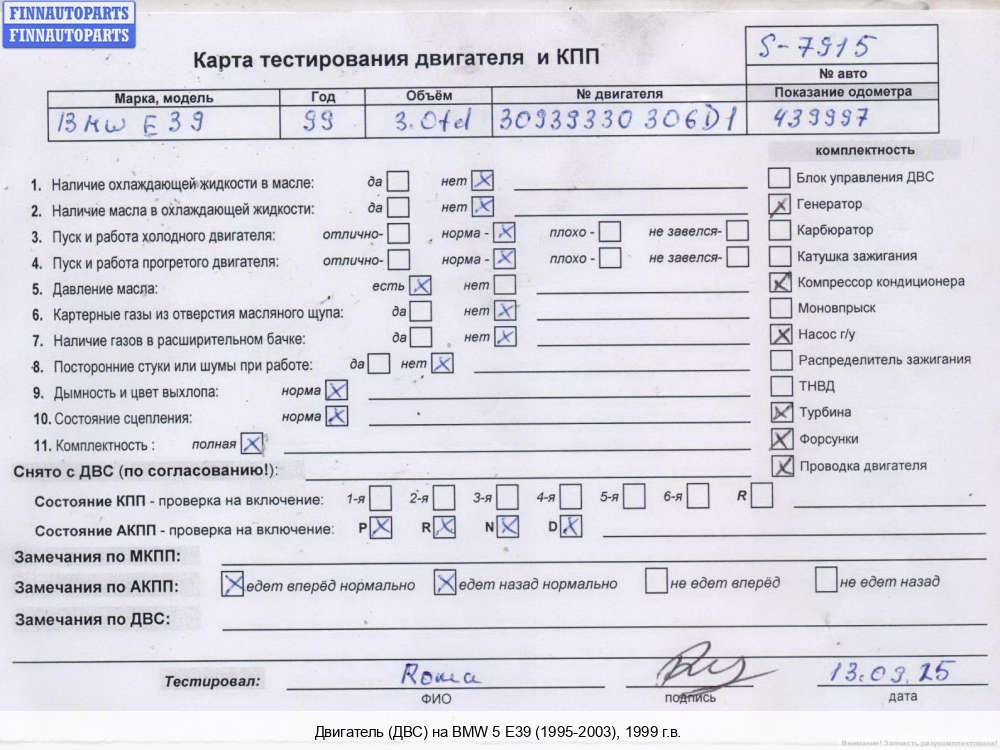 FINNAUTOPARTS
FINNAUTOPARTS
Карта тестирования двигателя и КПП
S-7915
№ авто
Марка, модель Год Объём № двигателя Показание одометра
BMW E39 99 3.0td 30939330 306D1 439997
комплектность
1. Наличие охлаждающей жидкости в масле: да нет Блок управления ДВС
2. Наличие масла в охлаждающей жидкости: да нет Генератор
3. Пуск и работа холодного двигателя: отлично- норма - плохо - не завелся- Карбюратор
4. Пуск и работа прогретого двигателя: отлично- норма - плохо - не завелся- Катушка зажигания
5. Давление масла: есть нет Компрессор кондиционера
6. Картерные газы из отверстия масляного щупа: да нет Моновпрыск
7. Наличие газов в расширительном бачке: да нет Насос г/у
8. Посторонние стуки или шумы при работе: да нет Распределитель зажигания
9. Дымность и цвет выхлопа: норма ТНВД
10. Состояние сцепления: норма Турбина
11. Комплектность : полная Форсунки
Снято с ДВС (по согласованию!): Проводка двигателя
Состояние КПП - проверка на включение: 1-я 2-я 3-я 4-я 5-я 6-я R
Состояние АКПП - проверка на включение: P R N D
Замечания по МКПП:
Замечания по АКПП: едет вперёд нормально едет назад нормально не едет вперёд не едет назад
Замечания по ДВС:
Тестировал: Roma 13.03.25
ФИО подпись дата
Двигатель (ДВС) на BMW 5 E39 (1995-2003), 1999 г.в.
Внимание! Запчасть разукомплектована!